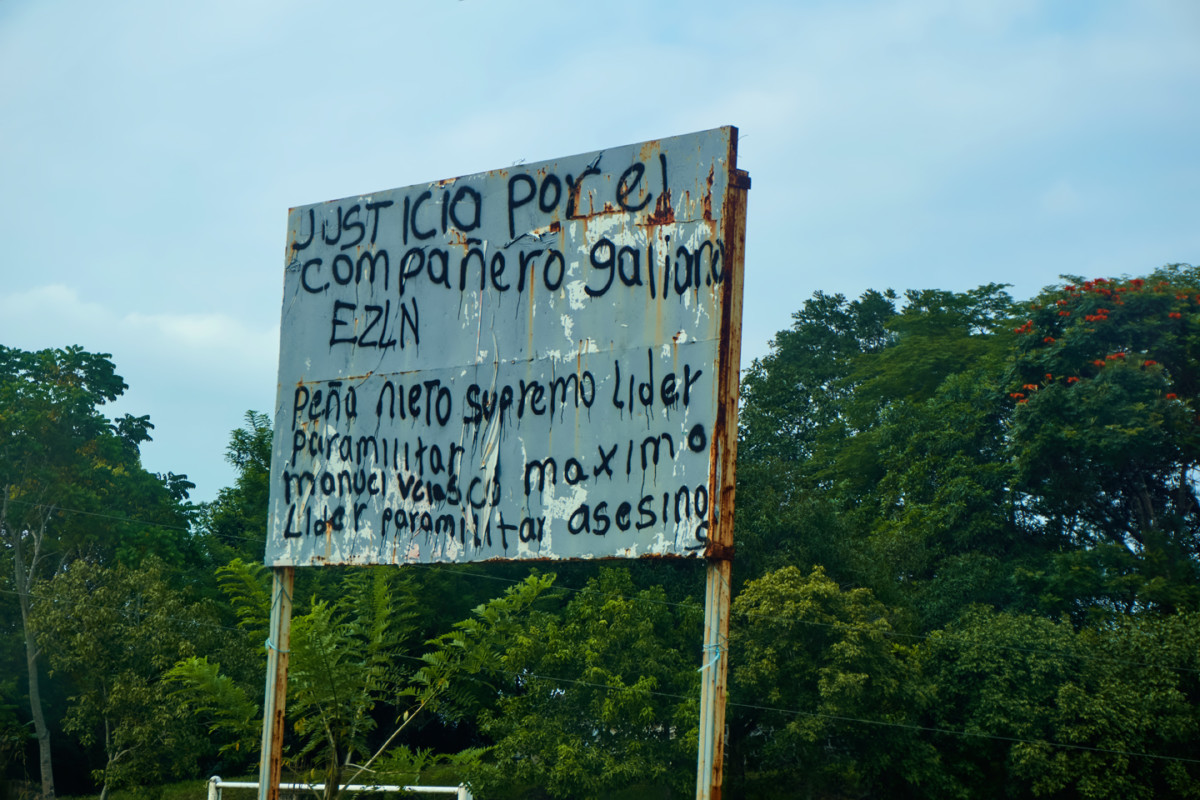 JUSTICIA por el
compañero galiano
EZLN
peña NIETO supremo lider
paramilitar
manuel velasco maximo
Lider paramilitar asesinos